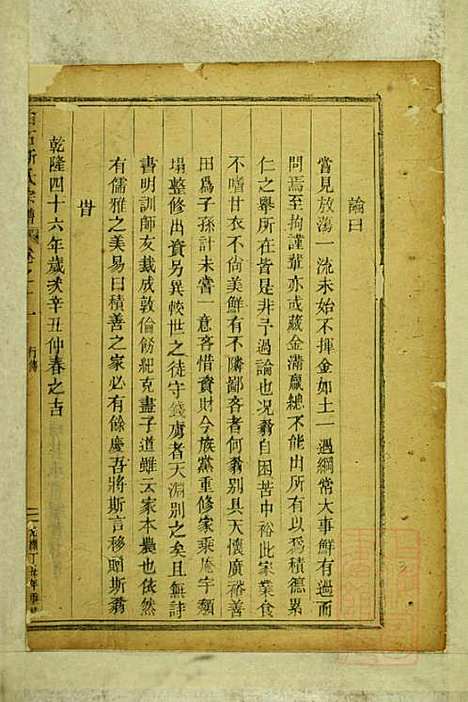 論曰
嘗見放蕩一流未始不揮金如土一遇綱常大事鮮有過而
問焉至拘謹輩亦或藏金滿籯總不能出所有以為積德累
仁之舉所在皆是非予過論也况翁自困苦中裕此家業食
不嗜甘衣不尚美鮮有不隣鄙吝者何翁別具天懷廣裕善
田為子孫計未嘗一意吝惜資財今族黨重修家乘庵宇頹
塌整修出資另異較世之徒守錢虜者天淵別之矣且無詩
書明訓師友裁成敦倫飭紀克盡子道雖云家本農也依然
有儒雅之美易曰積善之家必有餘慶吾將斯言移贈斯翁
旹
乾隆四十六年歲次辛丑仲春之吉
氏宗譜 卷之 行傳
光緒丁 年重